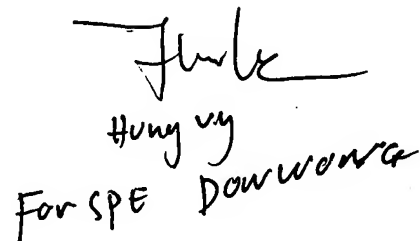 Hung vy
For SPE Don Wong